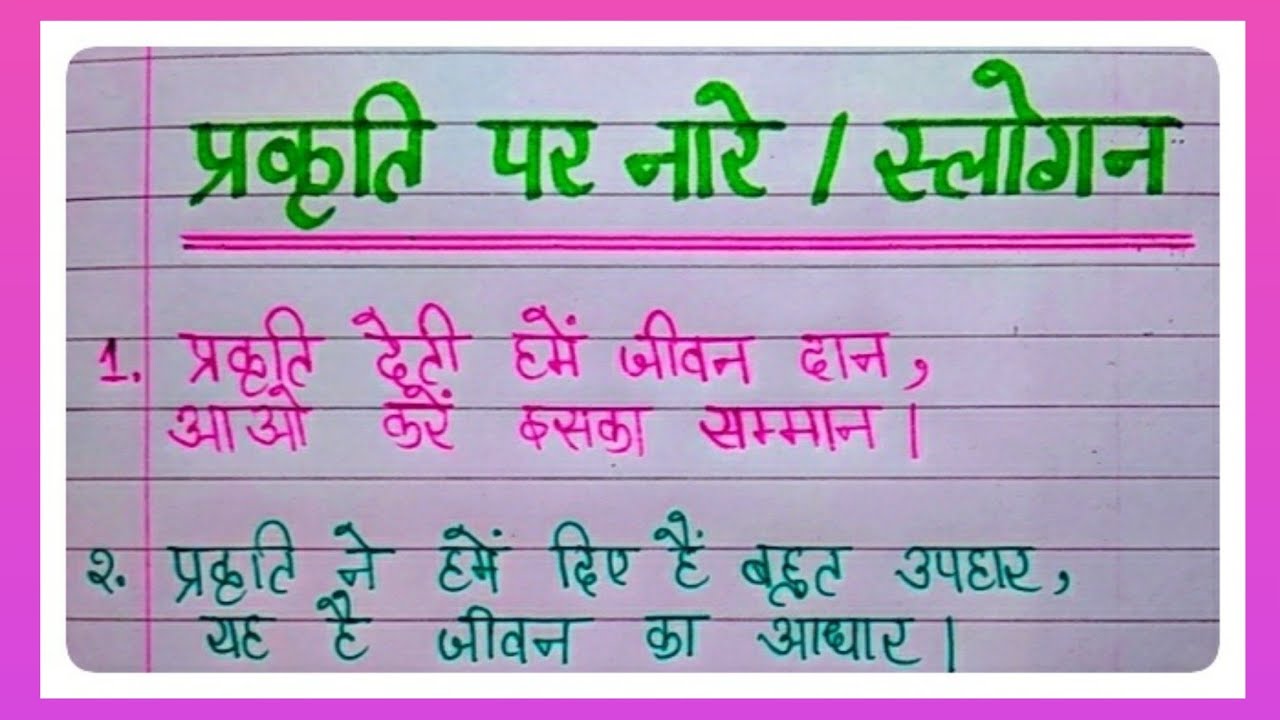 प्रकृति पर नारे / स्लोगन
1. प्रकृति देती हमें जीवन दान,
आओ करें इसका सम्मान।
२. प्रकृति ने हमें दिए हैं बहुत उपहार,
यह है जीवन का आधार।